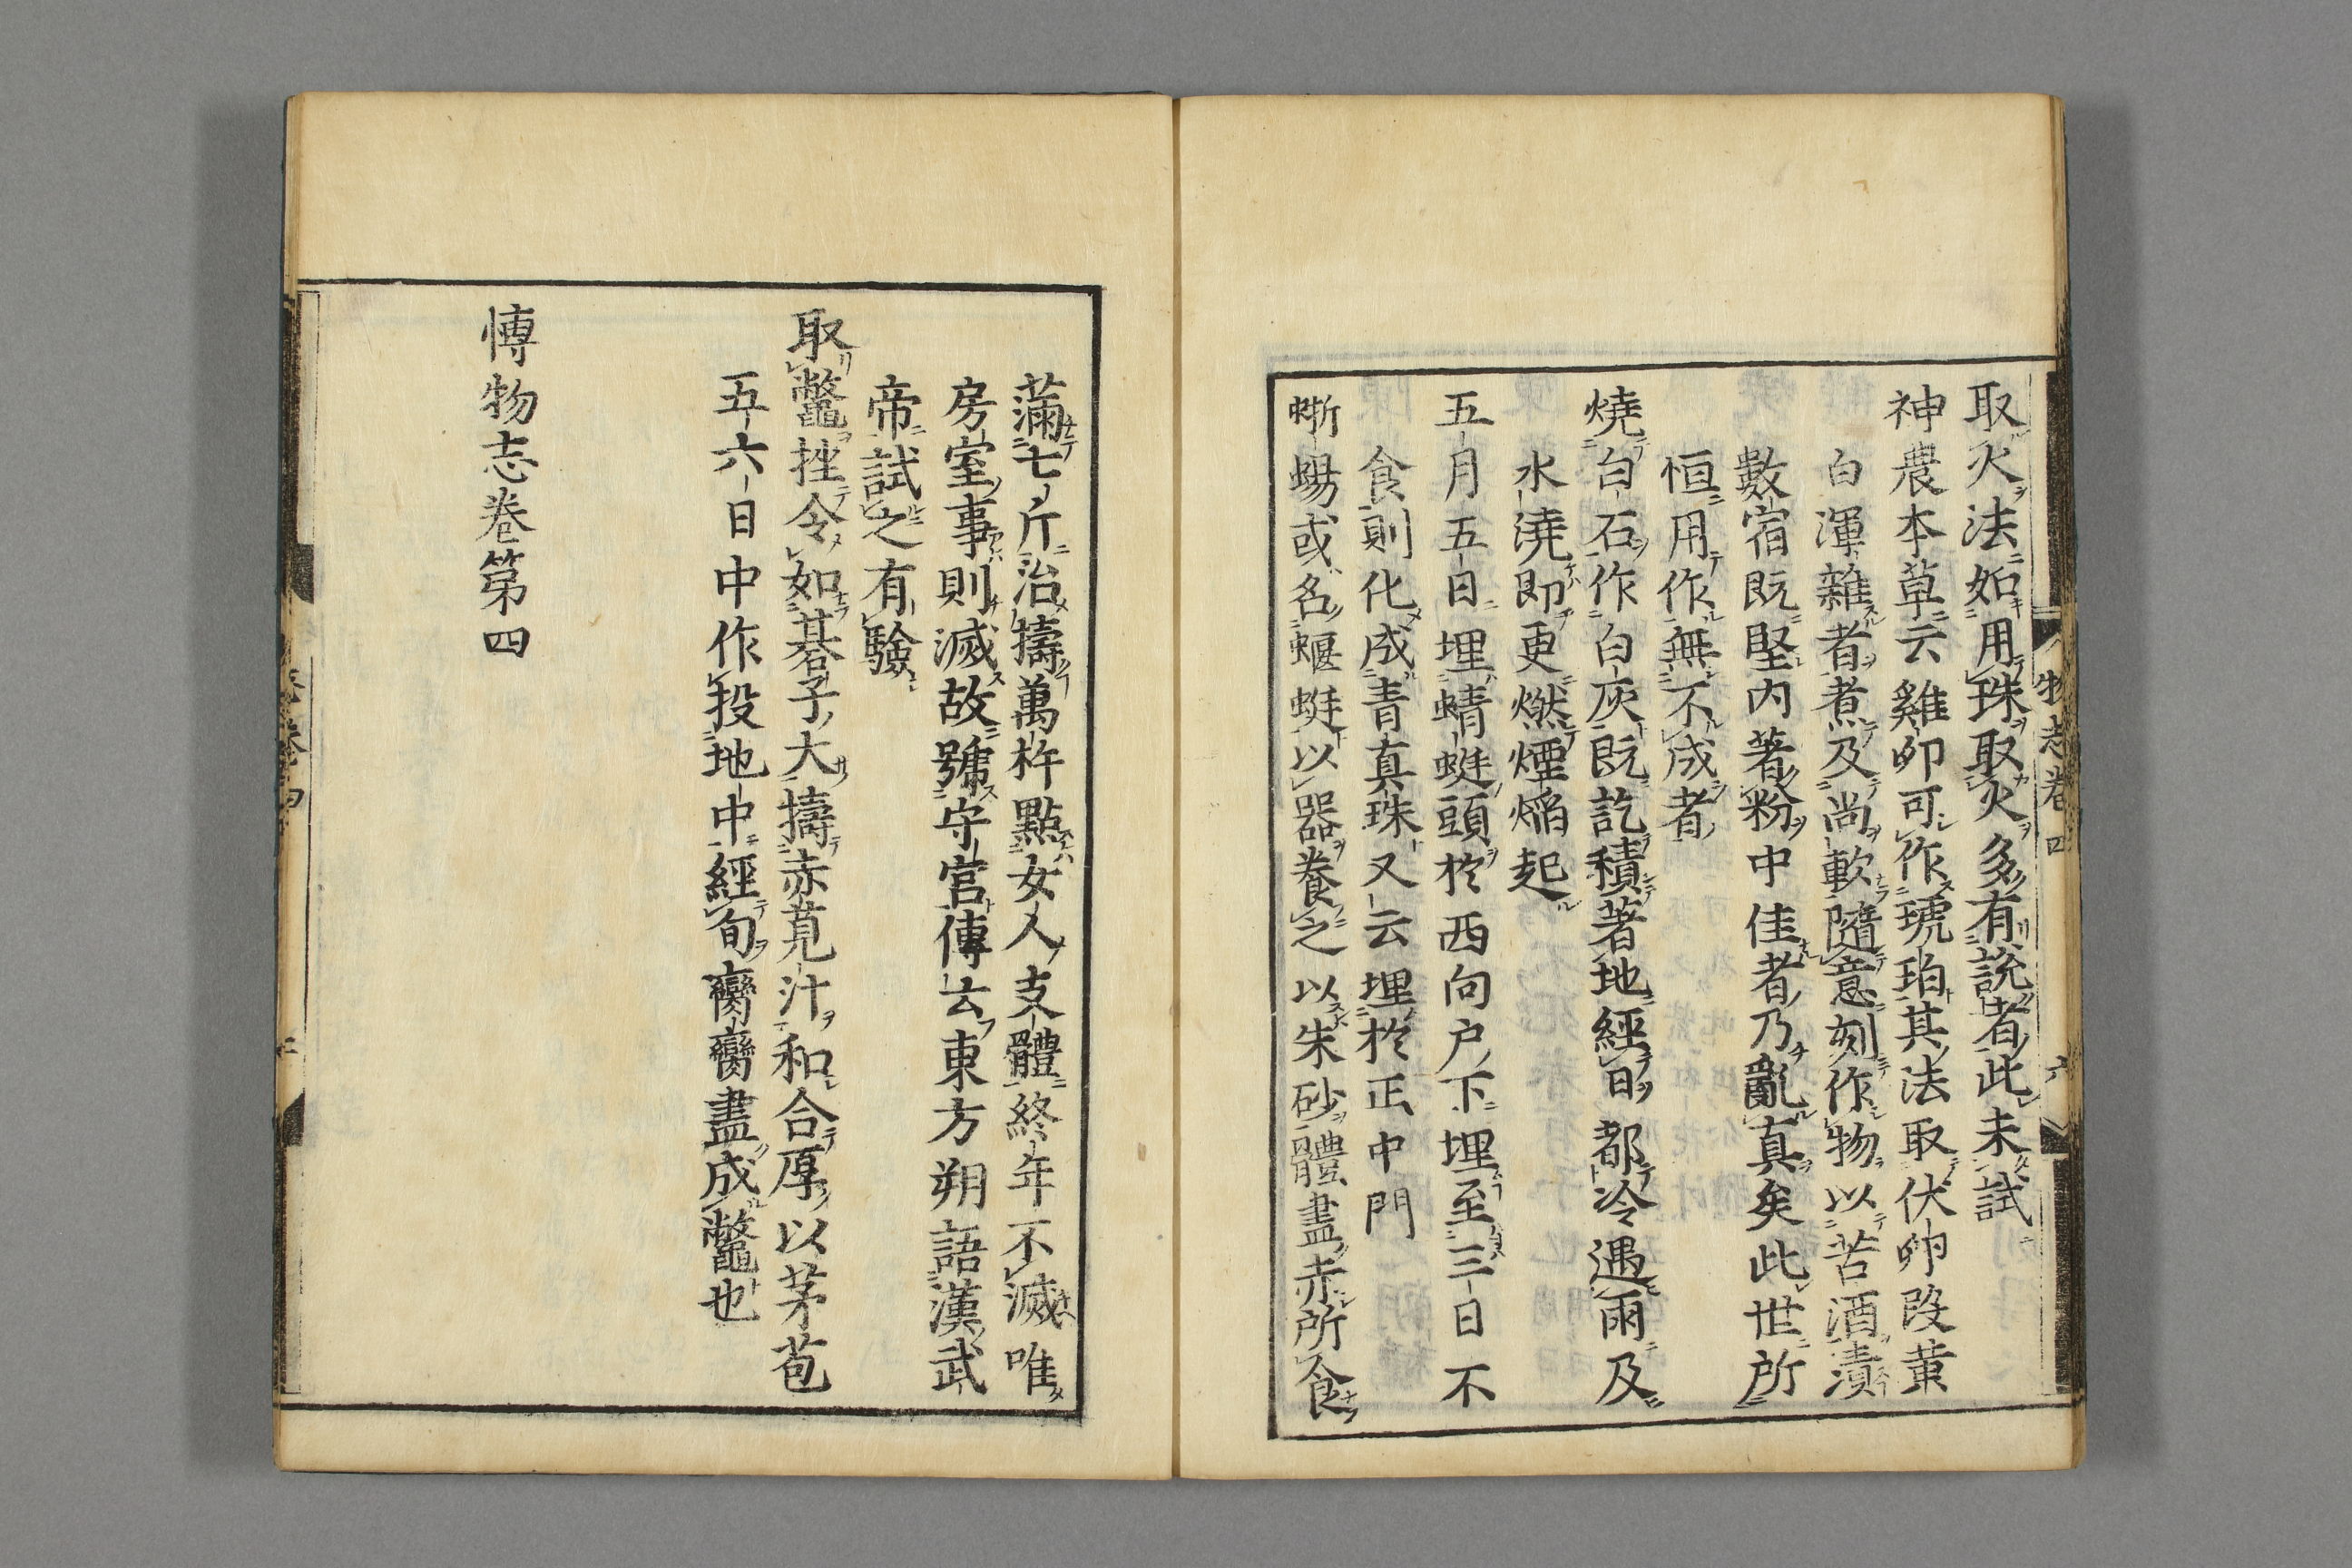 取火法如用珠取火多有說者此未試
神農本草云雞卵可作琥珀其法取伏卵段黃
白渾雜者煮及尚軟隨意刻作物以苦酒漬
數宿既堅內著粉中佳者乃亂真矣此世所
恒用作無不成者
燒白石作白灰既訖積著地經日都冷遇雨及
水澆即更燃煙焰起
五月五日埋蜻蜓頭於西向戶下埋至三日不
食則化成青真珠又云埋於正中門
蜥蜴或名蝘蜓以器養之以朱砂體盡赤所食
滿七斤治擣萬杵點女人支體終年不滅唯
房室事則滅故號守宮傳云東方朔語漢武
帝試之有驗
取鼈挫令如碁子大擣赤莧汁和合厚以茅苞
五六日中作投地中經旬臠臠盡成鼈也
博物志卷第四
物志卷四
六